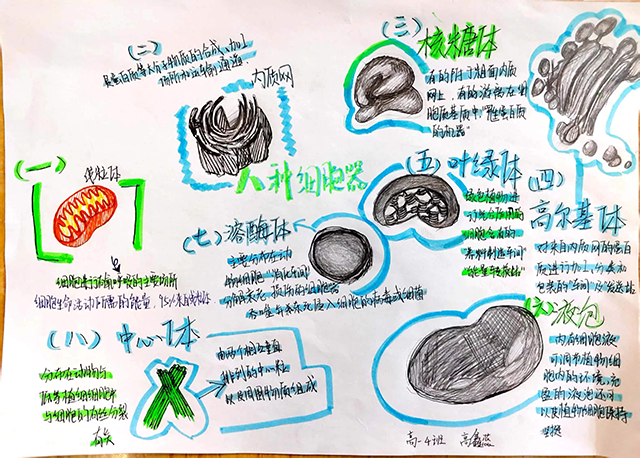 (二)
是蛋白质等大分子物质的合成、加工
场所和运输通道
内质网
(三)
核糖体
有的附于粗面内质
网上,有的游离在细
胞质基质中"生产蛋白质
的机器"
(一)
线粒体
细胞进行有氧呼吸的主要场所
细胞生命活动所需的能量,95%来自线粒体
八种细胞器
(五)叶绿体
绿色植物进
行光合作用的
细胞含有的
"养料制造车间"
"能量转换站"
(四)
高尔基体
对来自内质网的蛋白
质进行加工,分类和
包装的"车间"及"发送站"
(七)溶酶体
主要分布在动
物细胞"消化车间"
分解衰老、损伤的细胞器
吞噬并杀死侵入细胞的病毒或细菌
(六)液泡
内有细胞液
可调节植物细
胞内的环境,充
盈的液泡还可
以使植物细胞保持
坚挺
(八)中心体
分布在动物与
低等植物细胞中
与细胞的有丝分裂
有关
由两个相互垂直
排列的中心粒
以及周围物质组成
高一4班